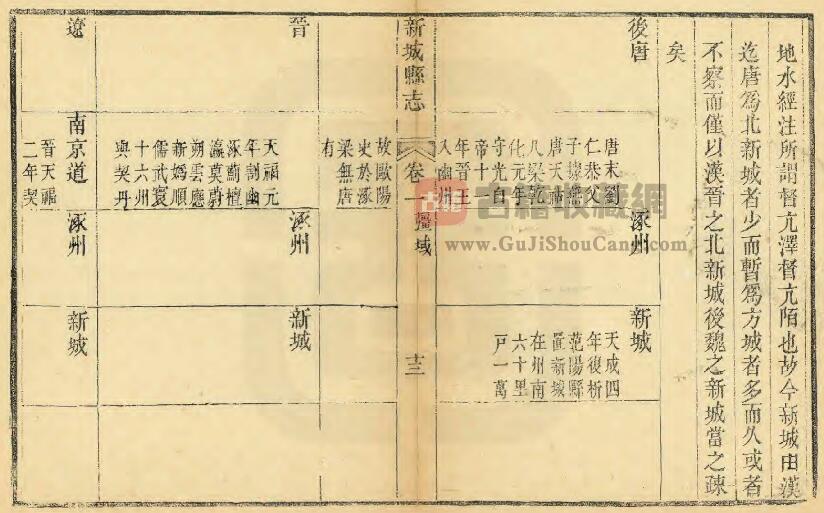 地水經注所謂督亢澤督亢陌也故今新城由漢
迄唐爲北新城者少而暫爲方城者多而久或者
不察而僅以漢晉之北新城後魏之新城當之疎
矣
後唐
唐末劉
仁恭父
子據
唐天祐
八梁乾
化元年
守光自
帝十一
年晉王
入幽州
涿州
新城
天成四
年復析
范陽縣
置新城
在州南
六十里
戶一萬
新城縣志
卷一 疆域
十三
故歐陽
史於涿
梁無唐
有
晉
天福元
年割幽
涿薊檀
瀛莫蔚
朔雲應
新媯順
儒武寰
十六州
與契丹
涿州
新城
遼
南京道
晉天福
二年契
涿州
新城
古籍收藏網
www.GuJiShouCang.com